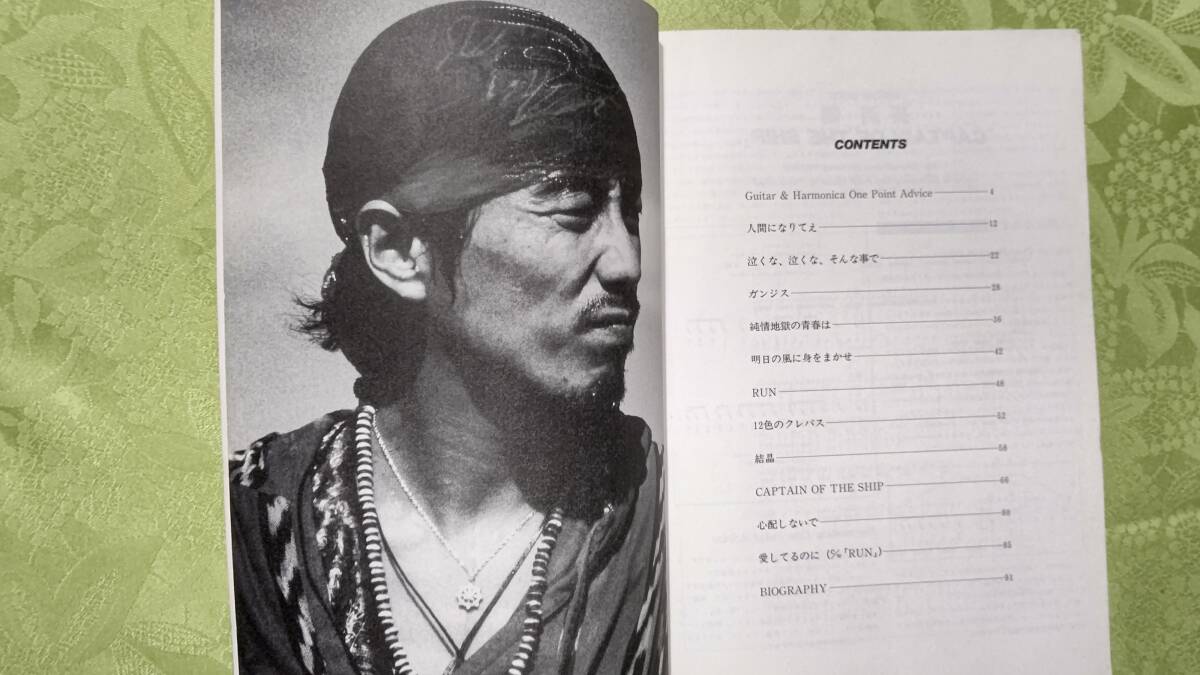 CONTENTS
Guitar & Harmonica One Point Advice 4
人間になりてえ 12
泣くな、泣くな、そんな事で 22
ガンジス 28
純情地獄の青春は 36
明日の風に身をまかせ 42
RUN 48
12色のクレパス 52
結晶 58
CAPTAIN OF THE SHIP 66
心配しないで 80
愛してるのに (c/w「RUN」) 85
BIOGRAPHY 91